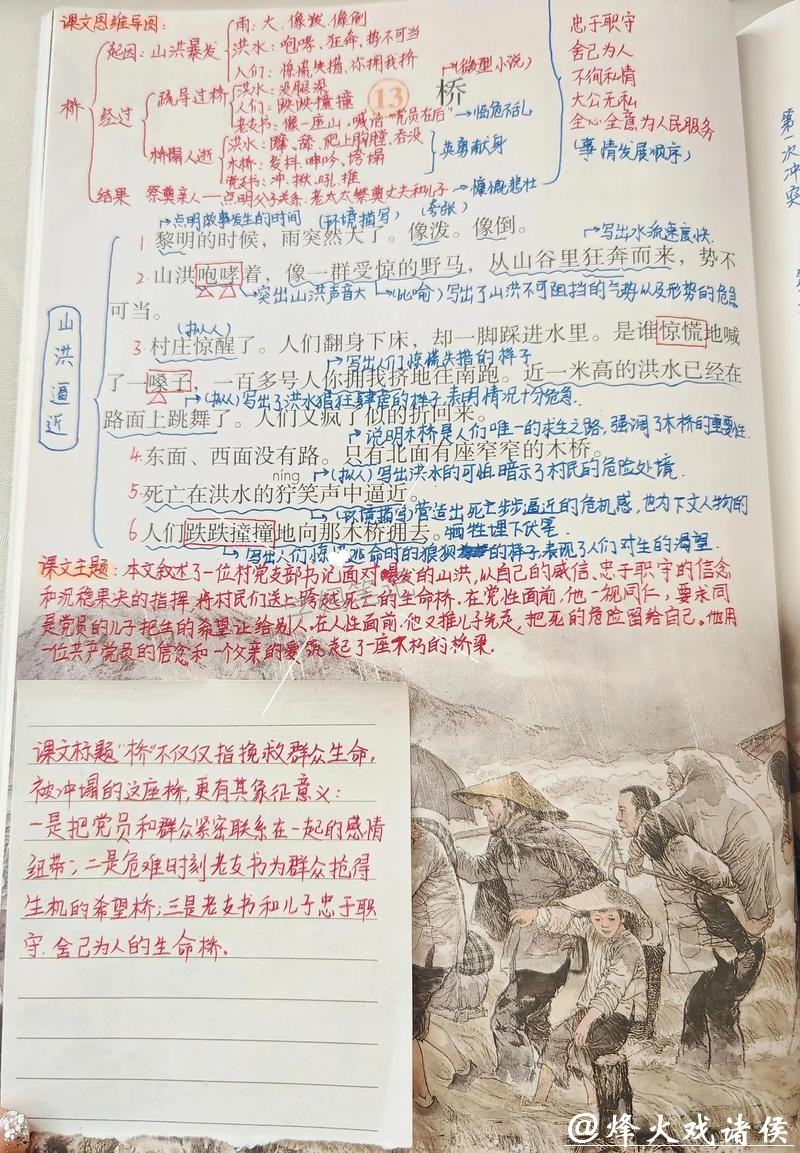 课文思维导图:
桥
起因:山洪暴发
雨:大、像泼、像倒
洪水:咆哮、狂奔、势不可当
人们:惊慌失措、你拥我挤
经过
疏导过桥
洪水:没腿深
人们:跌跌撞撞
老支书:像一座山,喊话"党员在后"→临危不乱
桥塌人逝
洪水:舔、爬上胸膛、吞没
木桥:发抖、呻吟、垮塌
老支书:冲、揪、吼、推
英勇献身
结果 祭奠亲人—点明父子关系:老太太祭奠丈夫和儿子→慷慨悲壮
(微型小说)
13 桥
忠于职守
舍己为人
不徇私情
大公无私
全心全意为人民服务
(事情发展顺序)
第一次冲突
山洪逼近
点明故事发生的时间 (环境描写) (夸张)
1.黎明的时候,雨突然大了。像泼。像倒。
写出水流速度快.
2.山洪咆哮着,像一群受惊的野马,从山谷里狂奔而来,势不
突出山洪声音大 (比喻)写出了山洪不可阻挡的气势以及形势的危急
可当。
(拟人)
3 村庄惊醒了。人们翻身下床,却一脚踩进水里。是谁惊慌地喊
写出人们惊慌失措的样子
了一嗓子,一百多号人你拥我挤地往南跑。近一米高的洪水已经在
(拟人)写出了洪水猖狂肆虐的样子,表明情况十分危急.
路面上跳舞了。人们又疯了似的折回来。
说明木桥是人们唯一的求生之路,强调了木桥的重要性.
4.东面、西面没有路。只有北面有座窄窄的木桥。
níng
(拟人)写出洪水的可怕,暗示了村民的危险处境.
5.死亡在洪水的狞笑声中逼近。
(环境描写)营造出死亡步步逼近的危机感,也为下文人物的
6 人们跌跌撞撞地向那木桥拥去。牺牲埋下伏笔
写出人们惊慌逃命时的狼狈的样子,表现了人们对生的渴望.
课文主题:本文叙述了一位村党支部书记面对爆发的山洪,从自己的威信、忠于职守的信念
和沉稳果决的指挥,将村民们送上跨越死亡的生命桥.在党性面前,他一视同仁,要求同
是党员的儿子把生的希望让给别人.在人性面前,他又推儿子先走,把死的危险留给自己。他用
一位共产党员的信念和一个父亲的爱,筑起了一座不朽的桥梁.
课文标题"桥"不仅仅指挽救群众生命,
被冲塌的这座桥,更有其象征意义:
一是把党员和群众紧密联系在一起的感情
纽带;二是危难时刻老支书为群众抢得
生机的希望桥;三是老支书和儿子忠于职
守.舍己为人的生命桥。
@烽火戏诸侯